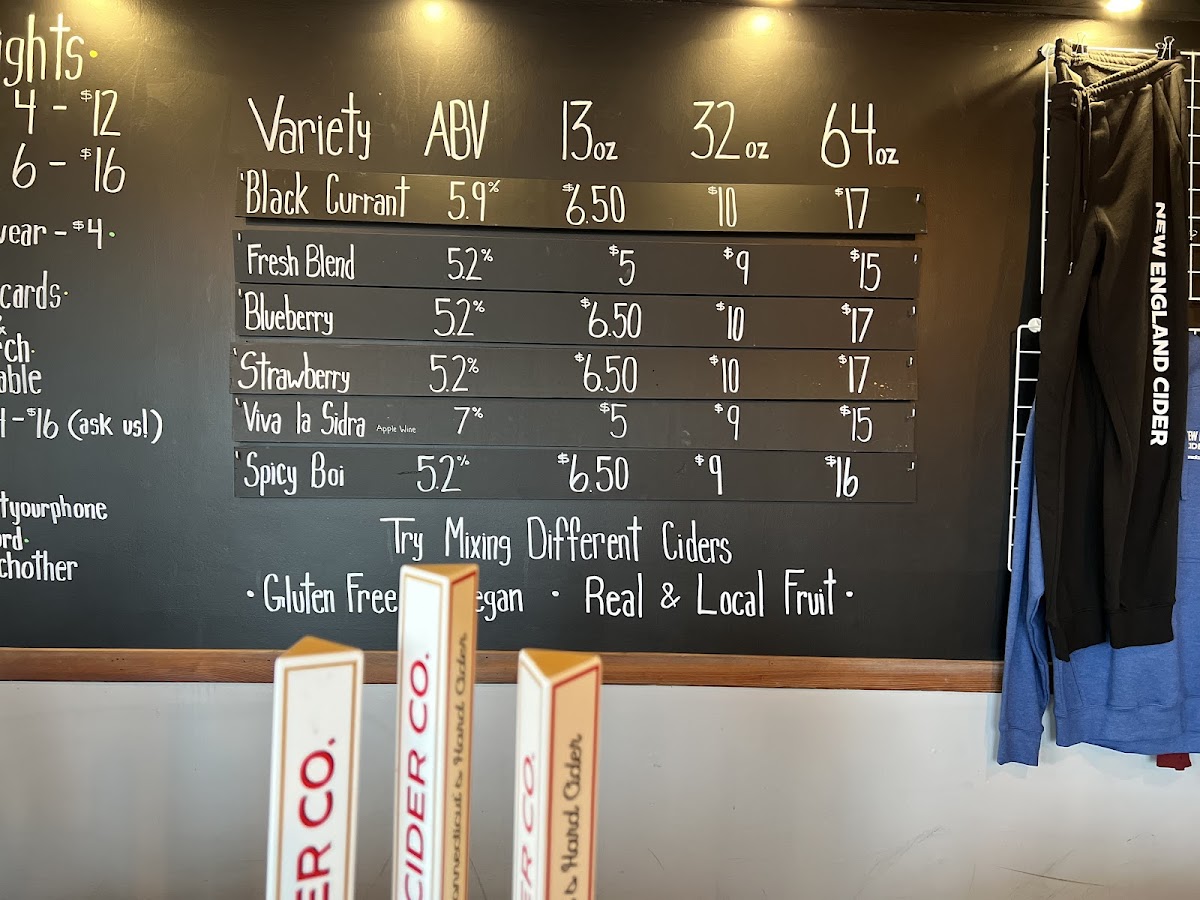 4 - $12
6 - $16
- $4
cards
- $16 (ask us!)
Variety ABV 13oz 32oz 64oz
Black Currant 5.9% $6.50 $10 $17
Fresh Blend 5.2% $5 $9 $15
Blueberry 5.2% $6.50 $10 $17
Strawberry 5.2% $6.50 $10 $17
Viva la Sidra Apple Wine 7% $5 $9 $15
Spicy Boi 5.2% $6.50 $9 $16
Try Mixing Different Ciders
• Gluten Free egan • Real & Local Fruit •
NEW ENGLAND CIDER
ER CO.
CIDER CO.
onnecticut's Hard Cider
ER CO.
's Hard Cider